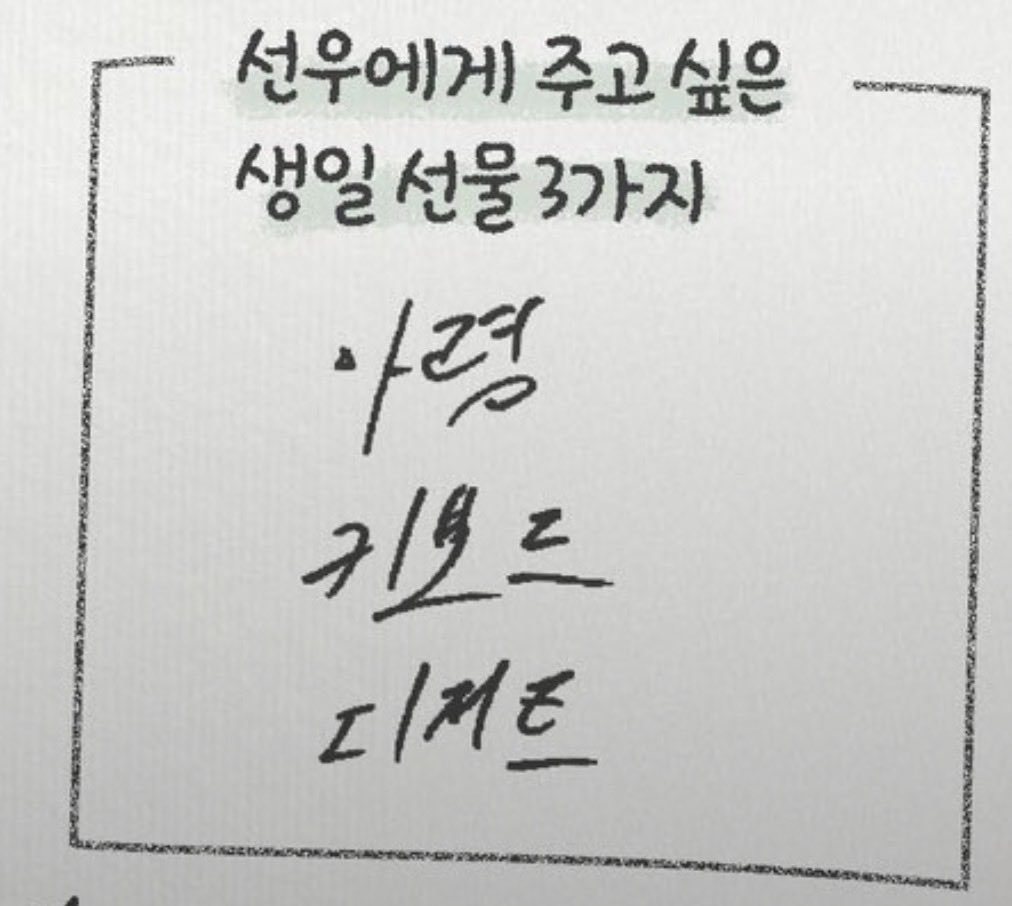 선우에게 주고 싶은
생일 선물 3가지
아령
키보드
디저트